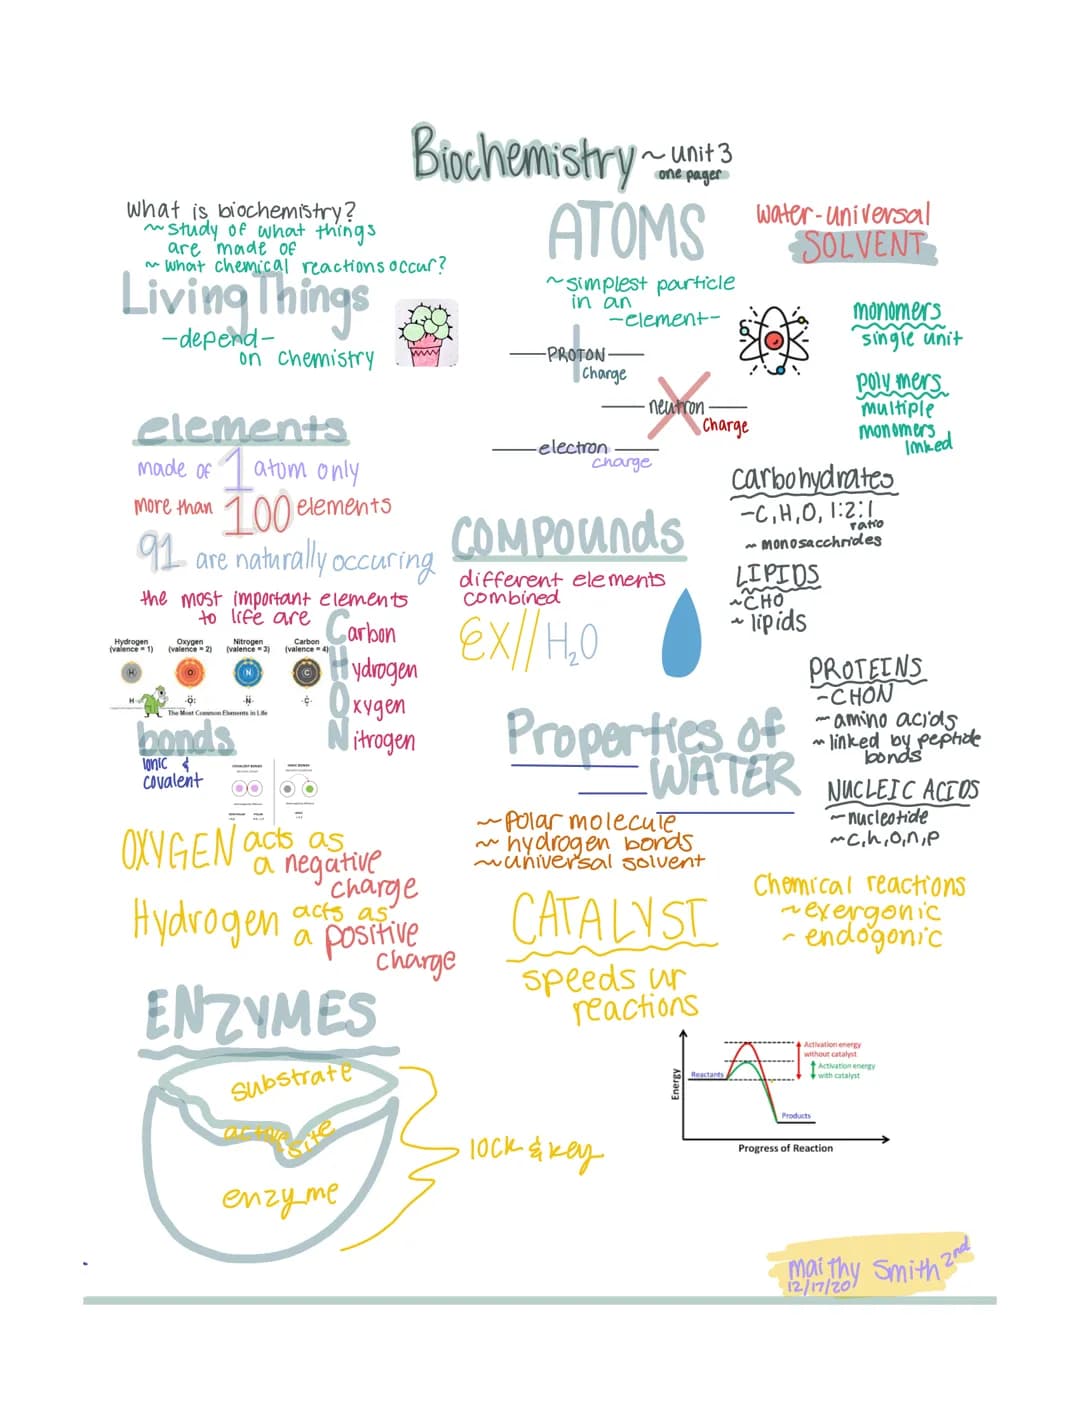 Biochemistry ~ unit 3
one pager
What is biochemistry?
~ study of what things
are made of
~ what chemical reactions occur?
Living Things
-depend-
on chemistry
ATOMS
~simplest particle
in an
-element-
PROTON
charge
neutron
charge
electron
charge
water-universal
SOLVENT
monomers
single unit
polymers
multiple
monomers
linked
elements
made of 1 atom only
more than 100 elements
91 are naturally occuring
the most important elements
to life are
Carbon
Hydrogen
Oxygen
Nitrogen
Hydrogen
(valence = 1)
Oxygen
(valence = 2)
Nitrogen
(valence = 3)
Carbon
(valence = 4)
H
O
N
C
H·
·O·
·N·
·C·
The Most Common Elements in Life
bonds
ionic &
covalent
COVALENT BONDS
IONIC BONDS
OXYGEN acts as
a negative
charge
Hydrogen acts as
a positive
charge
COMPOUNDS
different elements
combined
EX// H₂O
Properties of
WATER
~ polar molecule
~ hydrogen bonds
~ universal solvent
CATALYST
speeds ur
reactions
carbohydrates
-C, H, O, 1:2:1
ratio
~ monosacchrides
LIPIDS
~CHO
~ lipids
PROTEINS
-CHON
~ amino acids
~ linked by peptide
bonds
NUCLEIC ACIDS
~ nucleotide
~c,h,o,n,p
Chemical reactions
~exergonic
~ endogonic
ENZYMES
substrate
active site
enzyme
lock & key
Energy
Reactants
Activation energy
without catalyst
Activation energy
with catalyst
Products
Progress of Reaction
Maithy Smith 2nd
12/17/20